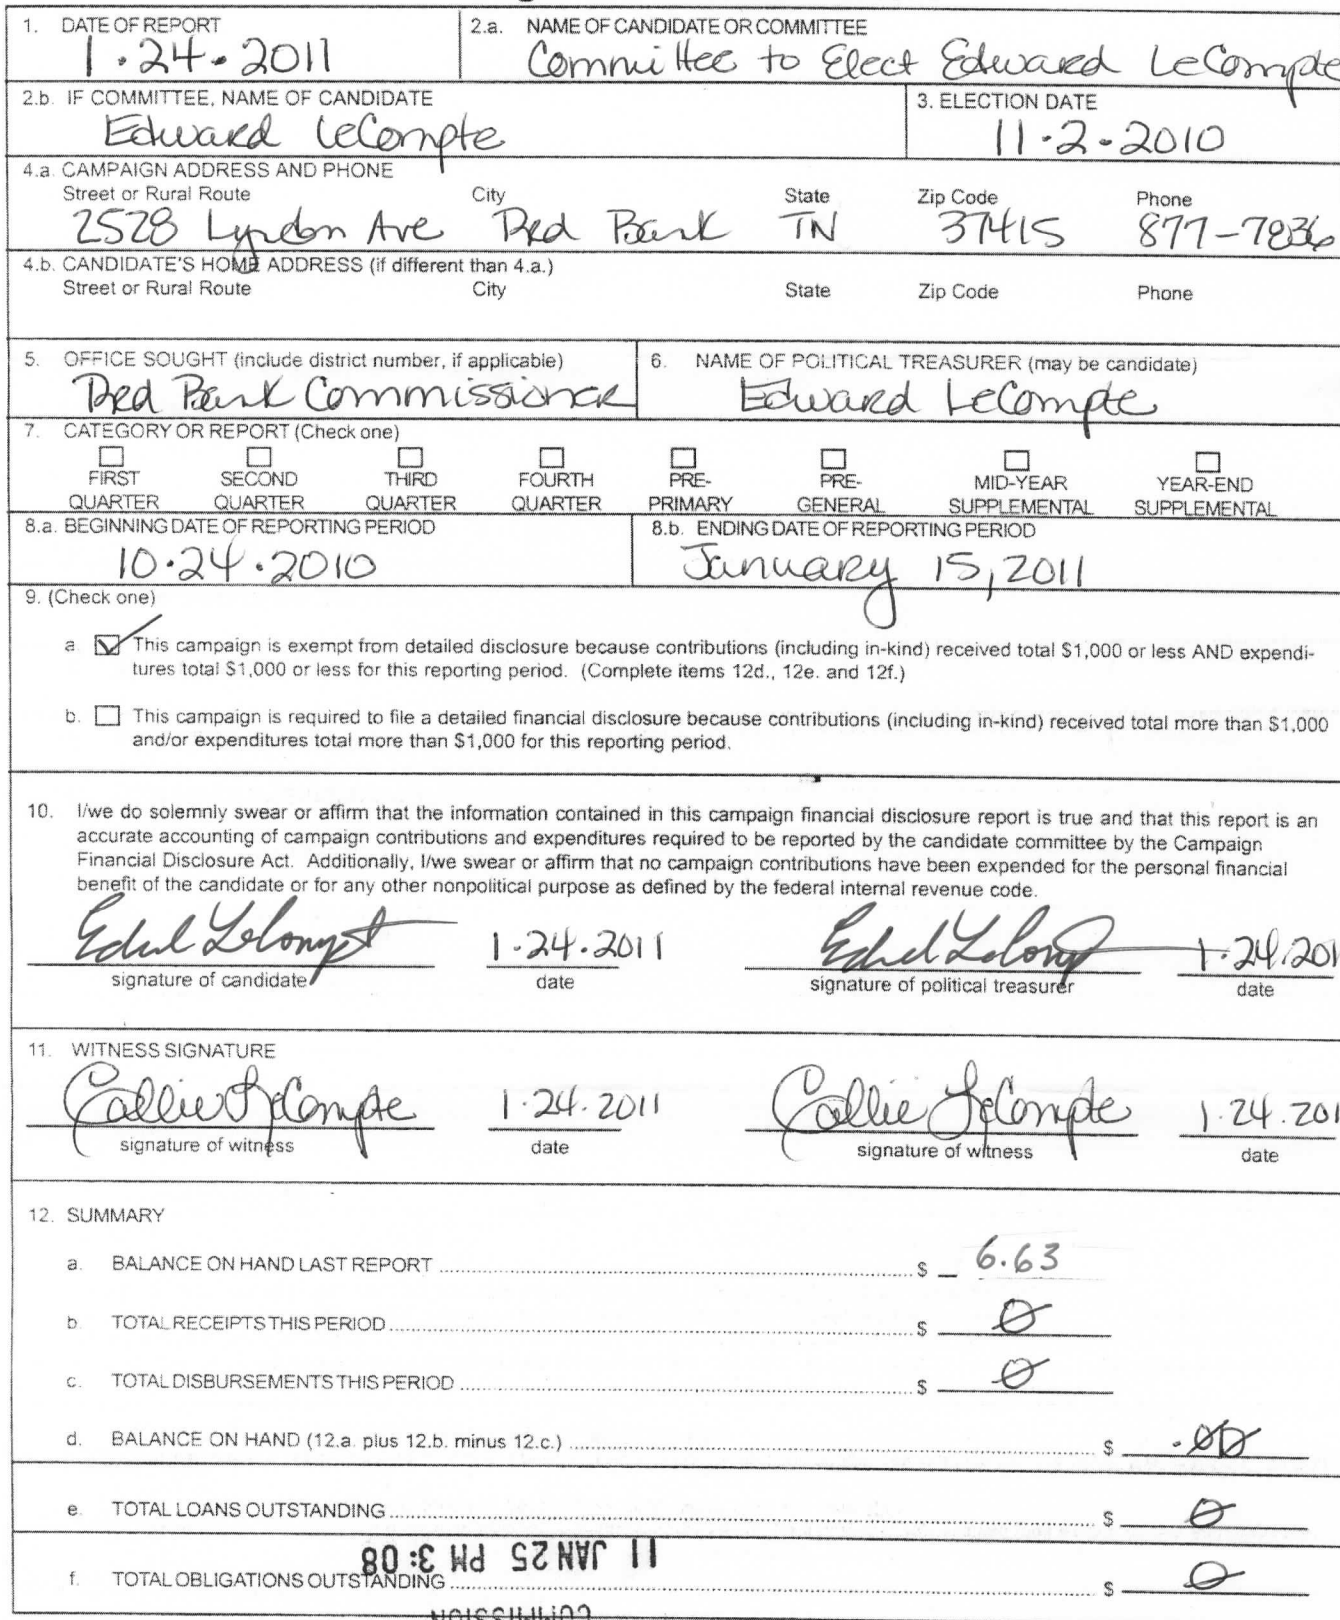 1. DATE OF REPORT
1.24.2011
2.a. NAME OF CANDIDATE OR COMMITTEE
Committee to Elect Edward LeCompte
2.b. IF COMMITTEE, NAME OF CANDIDATE
Edward LeCompte
3. ELECTION DATE
11.2.2010
4.a. CAMPAIGN ADDRESS AND PHONE
Street or Rural Route City State Zip Code Phone
2528 Lyndon Ave Red Bank TN 37415 877-7836
4.b. CANDIDATE'S HOME ADDRESS (if different than 4.a.)
Street or Rural Route City State Zip Code Phone
5. OFFICE SOUGHT (include district number, if applicable)
Red Bank Commissioner
6. NAME OF POLITICAL TREASURER (may be candidate)
Edward LeCompte
7. CATEGORY OR REPORT (Check one)
FIRST SECOND THIRD FOURTH PRE- PRE- MID-YEAR YEAR-END
QUARTER QUARTER QUARTER QUARTER PRIMARY GENERAL SUPPLEMENTAL SUPPLEMENTAL
8.a. BEGINNING DATE OF REPORTING PERIOD
10.24.2010
8.b. ENDING DATE OF REPORTING PERIOD
January 15, 2011
9. (Check one)
a. This campaign is exempt from detailed disclosure because contributions (including in-kind) received total $1,000 or less AND expendi-
tures total $1,000 or less for this reporting period. (Complete items 12d., 12e. and 12f.)
b. This campaign is required to file a detailed financial disclosure because contributions (including in-kind) received total more than $1,000
and/or expenditures total more than $1,000 for this reporting period.
10. I/we do solemnly swear or affirm that the information contained in this campaign financial disclosure report is true and that this report is an
accurate accounting of campaign contributions and expenditures required to be reported by the candidate committee by the Campaign
Financial Disclosure Act. Additionally, I/we swear or affirm that no campaign contributions have been expended for the personal financial
benefit of the candidate or for any other nonpolitical purpose as defined by the federal internal revenue code.
1.24.2011 1.24.201
signature of candidate date signature of political treasurer date
11. WITNESS SIGNATURE
Callie LeCompte 1.24.2011 Callie LeCompte 1.24.201
signature of witness date signature of witness date
12. SUMMARY
a. BALANCE ON HAND LAST REPORT $ 6.63
b. TOTAL RECEIPTS THIS PERIOD $ 0
c. TOTAL DISBURSEMENTS THIS PERIOD $ 0
d. BALANCE ON HAND (12.a. plus 12.b. minus 12.c.) $ .00
e. TOTAL LOANS OUTSTANDING $ 0
11 JAN 25 PM 3:08
f. TOTAL OBLIGATIONS OUTSTANDING $ 0
COMMISSION